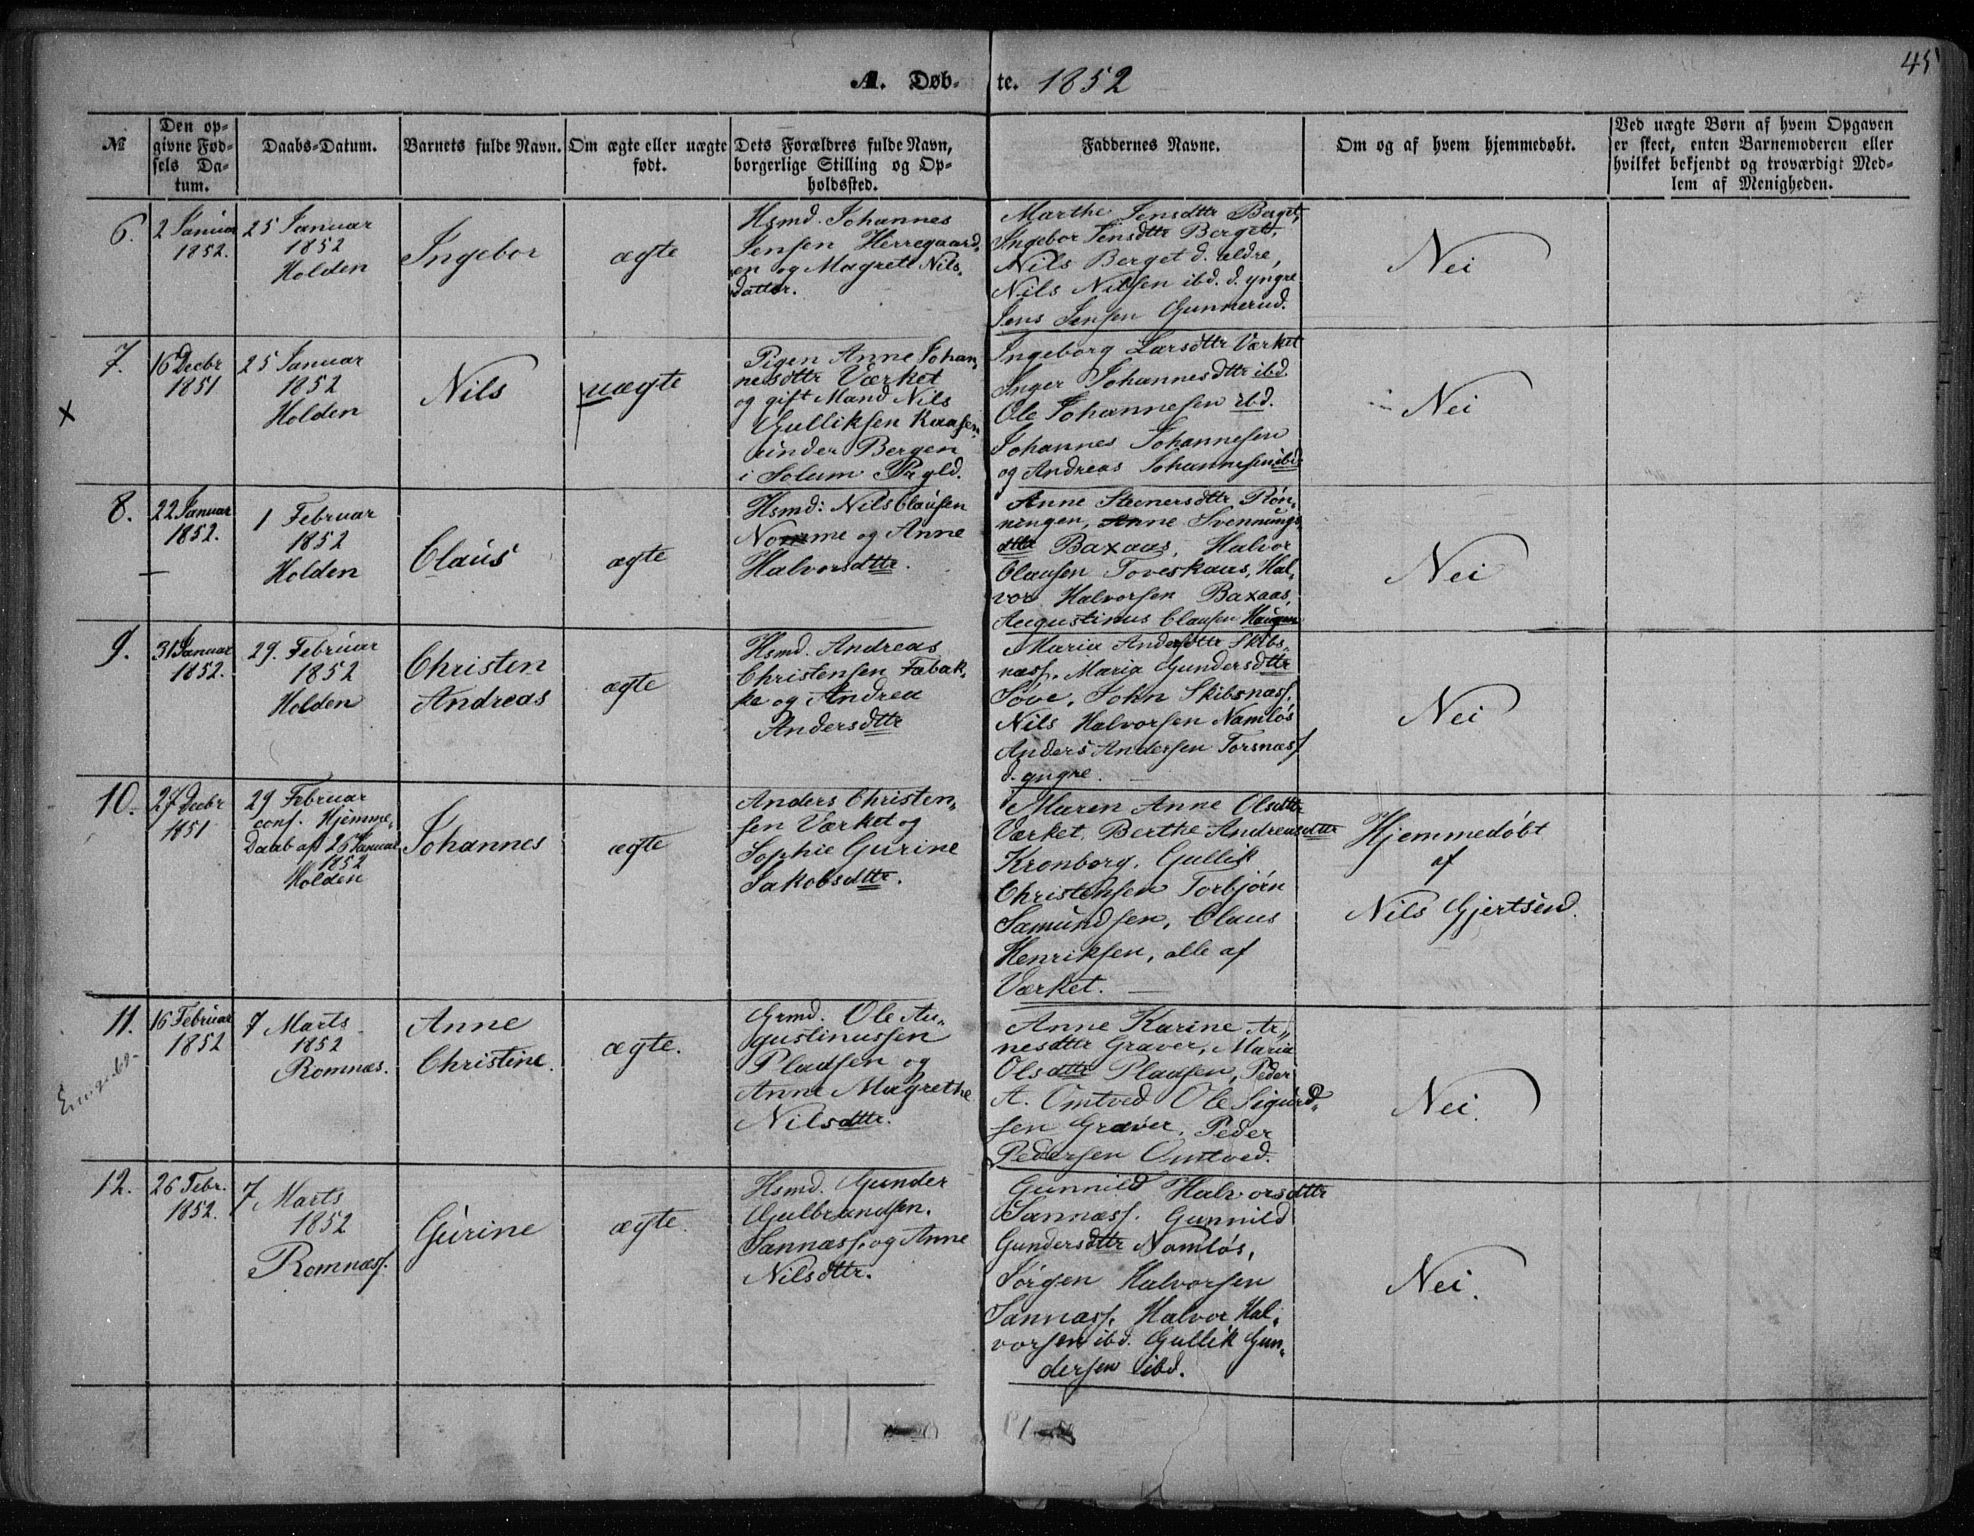 45
A. Døb- te. 1852
№
Den op-
givne Fød-
sels Da-
tum.
Daabs-Datum.
Barnets fulde Navn.
Om ægte eller uægte
født.
Dets Forældres fulde Navn,
borgerlige Stilling og Op-
holdssted.
Faddernes Navne.
Om og af hvem hjemmedøbt.
Ved uægte Børn af hvem Opgaven
er skeet, enten Barnemoderen eller
hvilket bekjendt og troværdigt Med-
lem af Menigheden.
6.
2 Januar
1852.
25 Januar
1852
Holden
Ingebor
ægte
Hsmd. Johannes
Jensen Herregaard-
en og Magrete Nils-
datter.
Marthe Jensdttr Berget,
Ingebor Jensdttr Berget,
Nils Berget d. ældre,
Nils Nilsen ibd. d. yngre
Jens Jensen Gunnerud.
Nei
7.
x
16 Decbr
1851
25 Januar
1852
Holden
Nils
uægte
Pigen Anne Johan-
nesdttr Værket
og gift Mand Nils
Gulliksen Kaasen
under Bergen
i Solum Prgld.
Ingeborg Larsdttr Værket
Inger Johannesdttr ibd.
Ole Johannesen ibd.
Johannes Johannesen
og Andreas Johannesen ibd.
Nei
8.
22 Januar
1852.
1 Februar
1852
Holden
Claus
ægte
Hsmd: Nils Clausen
Nomme og Anne
Halvorsdttr.
Anne Steenersdttr Røn-
ningen, Anne Svennungs
dttr Baxaas, Halvor
Clausen Toveskaas, Hal-
vor Halvorsen Baxaas,
Augustinus Clausen Haugen
Nei
9.
31 Januar
1852.
29. Februar
1852
Holden
Christen
Andreas
ægte
Hsmd. Andreas
Christensen Fabak-
ke og Andrea
Andersdttr
Maria Andersdttr Skibs-
næss, Maria Gundersdttr
Søve, John Skibsnæss,
Nils Halvorsen Namløs
Anders Andersen Torsnæss
d. yngre.
Nei
10.
27 Decbr
1851
29 Februar
conf. Hjemme-
Daab af 26 Januar
1852
Holden
Johannes
ægte
Anders Christen-
sen Værket og
Sophie Gurine
Jakobsdttr.
Maren Anne Olsdttr
Værket, Berthe Andreasdttr
Kronborg, Gullik
Christensen Torbjörn
Samundsen, Claus
Henriksen, alle af
Værket.
Hjemmedøbt
af
Nils Gjertsen.
11.
16 Februar
1852
7 Marts
1852
Romnæs.
Anne
Christine.
ægte.
Grmd. Ole Au-
gustinussen
Pladsen og
Anne Magrethe
Nilsdttr.
Anne Karine Ar-
nesdttr Graver, Maria
Olsdttr Pladsen, Peder
A. Omtved Ole Sigurd-
sen Graver, Peder
Pedersen Omtved.
Nei.
12.
26 Febr.
1852.
7 Marts
1852
Romnæs.
Gurine
ægte.
Hsmd. Gunder
Gulbrandsen.
Sannæss. og Anne
Nilsdttr.
Gunnild Halvorsdttr
Sannæss. Gunnild
Gundersdttr Namløs,
Jörgen Halvorsen
Sannæss, Halvor Hal-
vorsen ibd. Gullik Gun-
dersen ibd.
Nei.